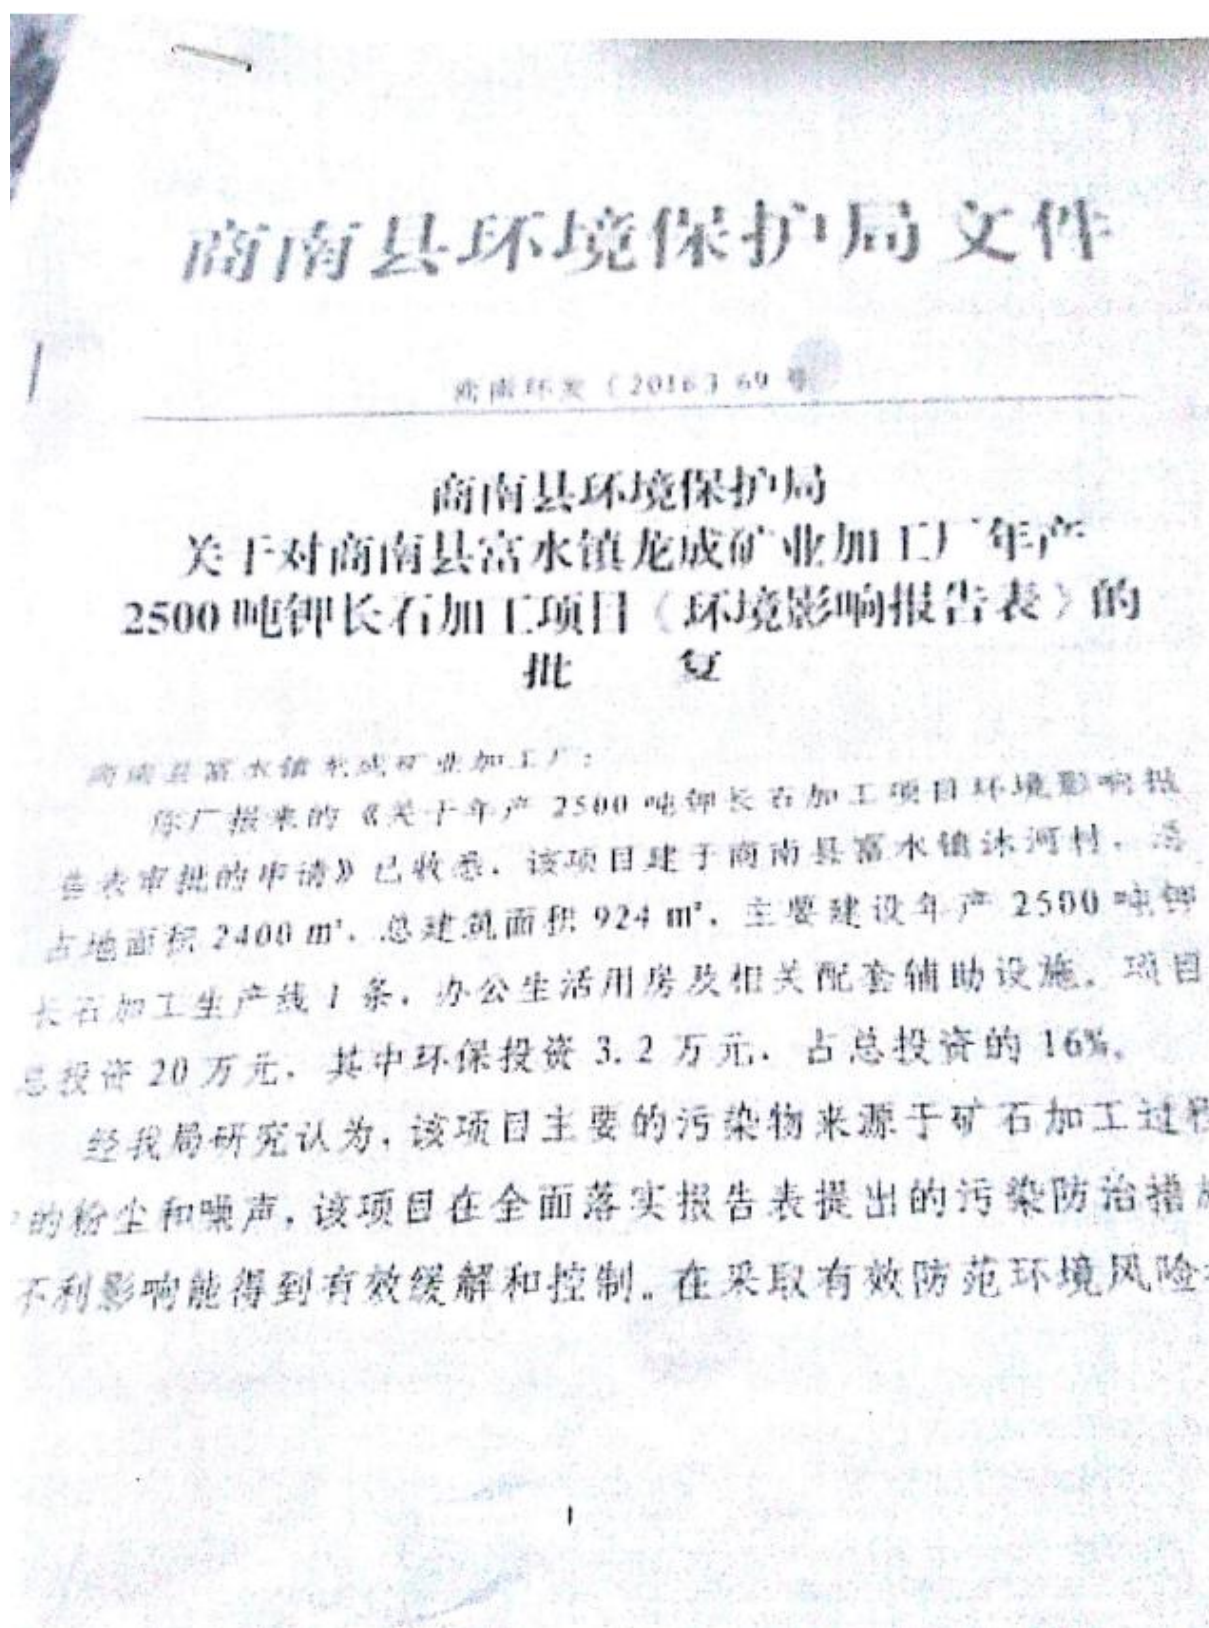 商南县环境保护局文件
商南环发〔2016〕69号
商南县环境保护局
关于对商南县富水镇龙成矿业加工厂年产
2500吨钾长石加工项目《环境影响报告表》的
批 复
商南县富水镇龙成矿业加工厂：
你厂报来的《关于年产2500吨钾长石加工项目环境影响报
告表审批的申请》已收悉。该项目建于商南县富水镇沐河村，总
占地面积2400m²，总建筑面积924m²，主要建设年产2500吨钾
长石加工生产线1条，办公生活用房及相关配套辅助设施。项目
总投资20万元，其中环保投资3.2万元，占总投资的16%。
经我局研究认为，该项目主要的污染物来源于矿石加工过程
的粉尘和噪声，该项目在全面落实报告表提出的污染防治措施
不利影响能得到有效缓解和控制。在采取有效防范环境风险
1